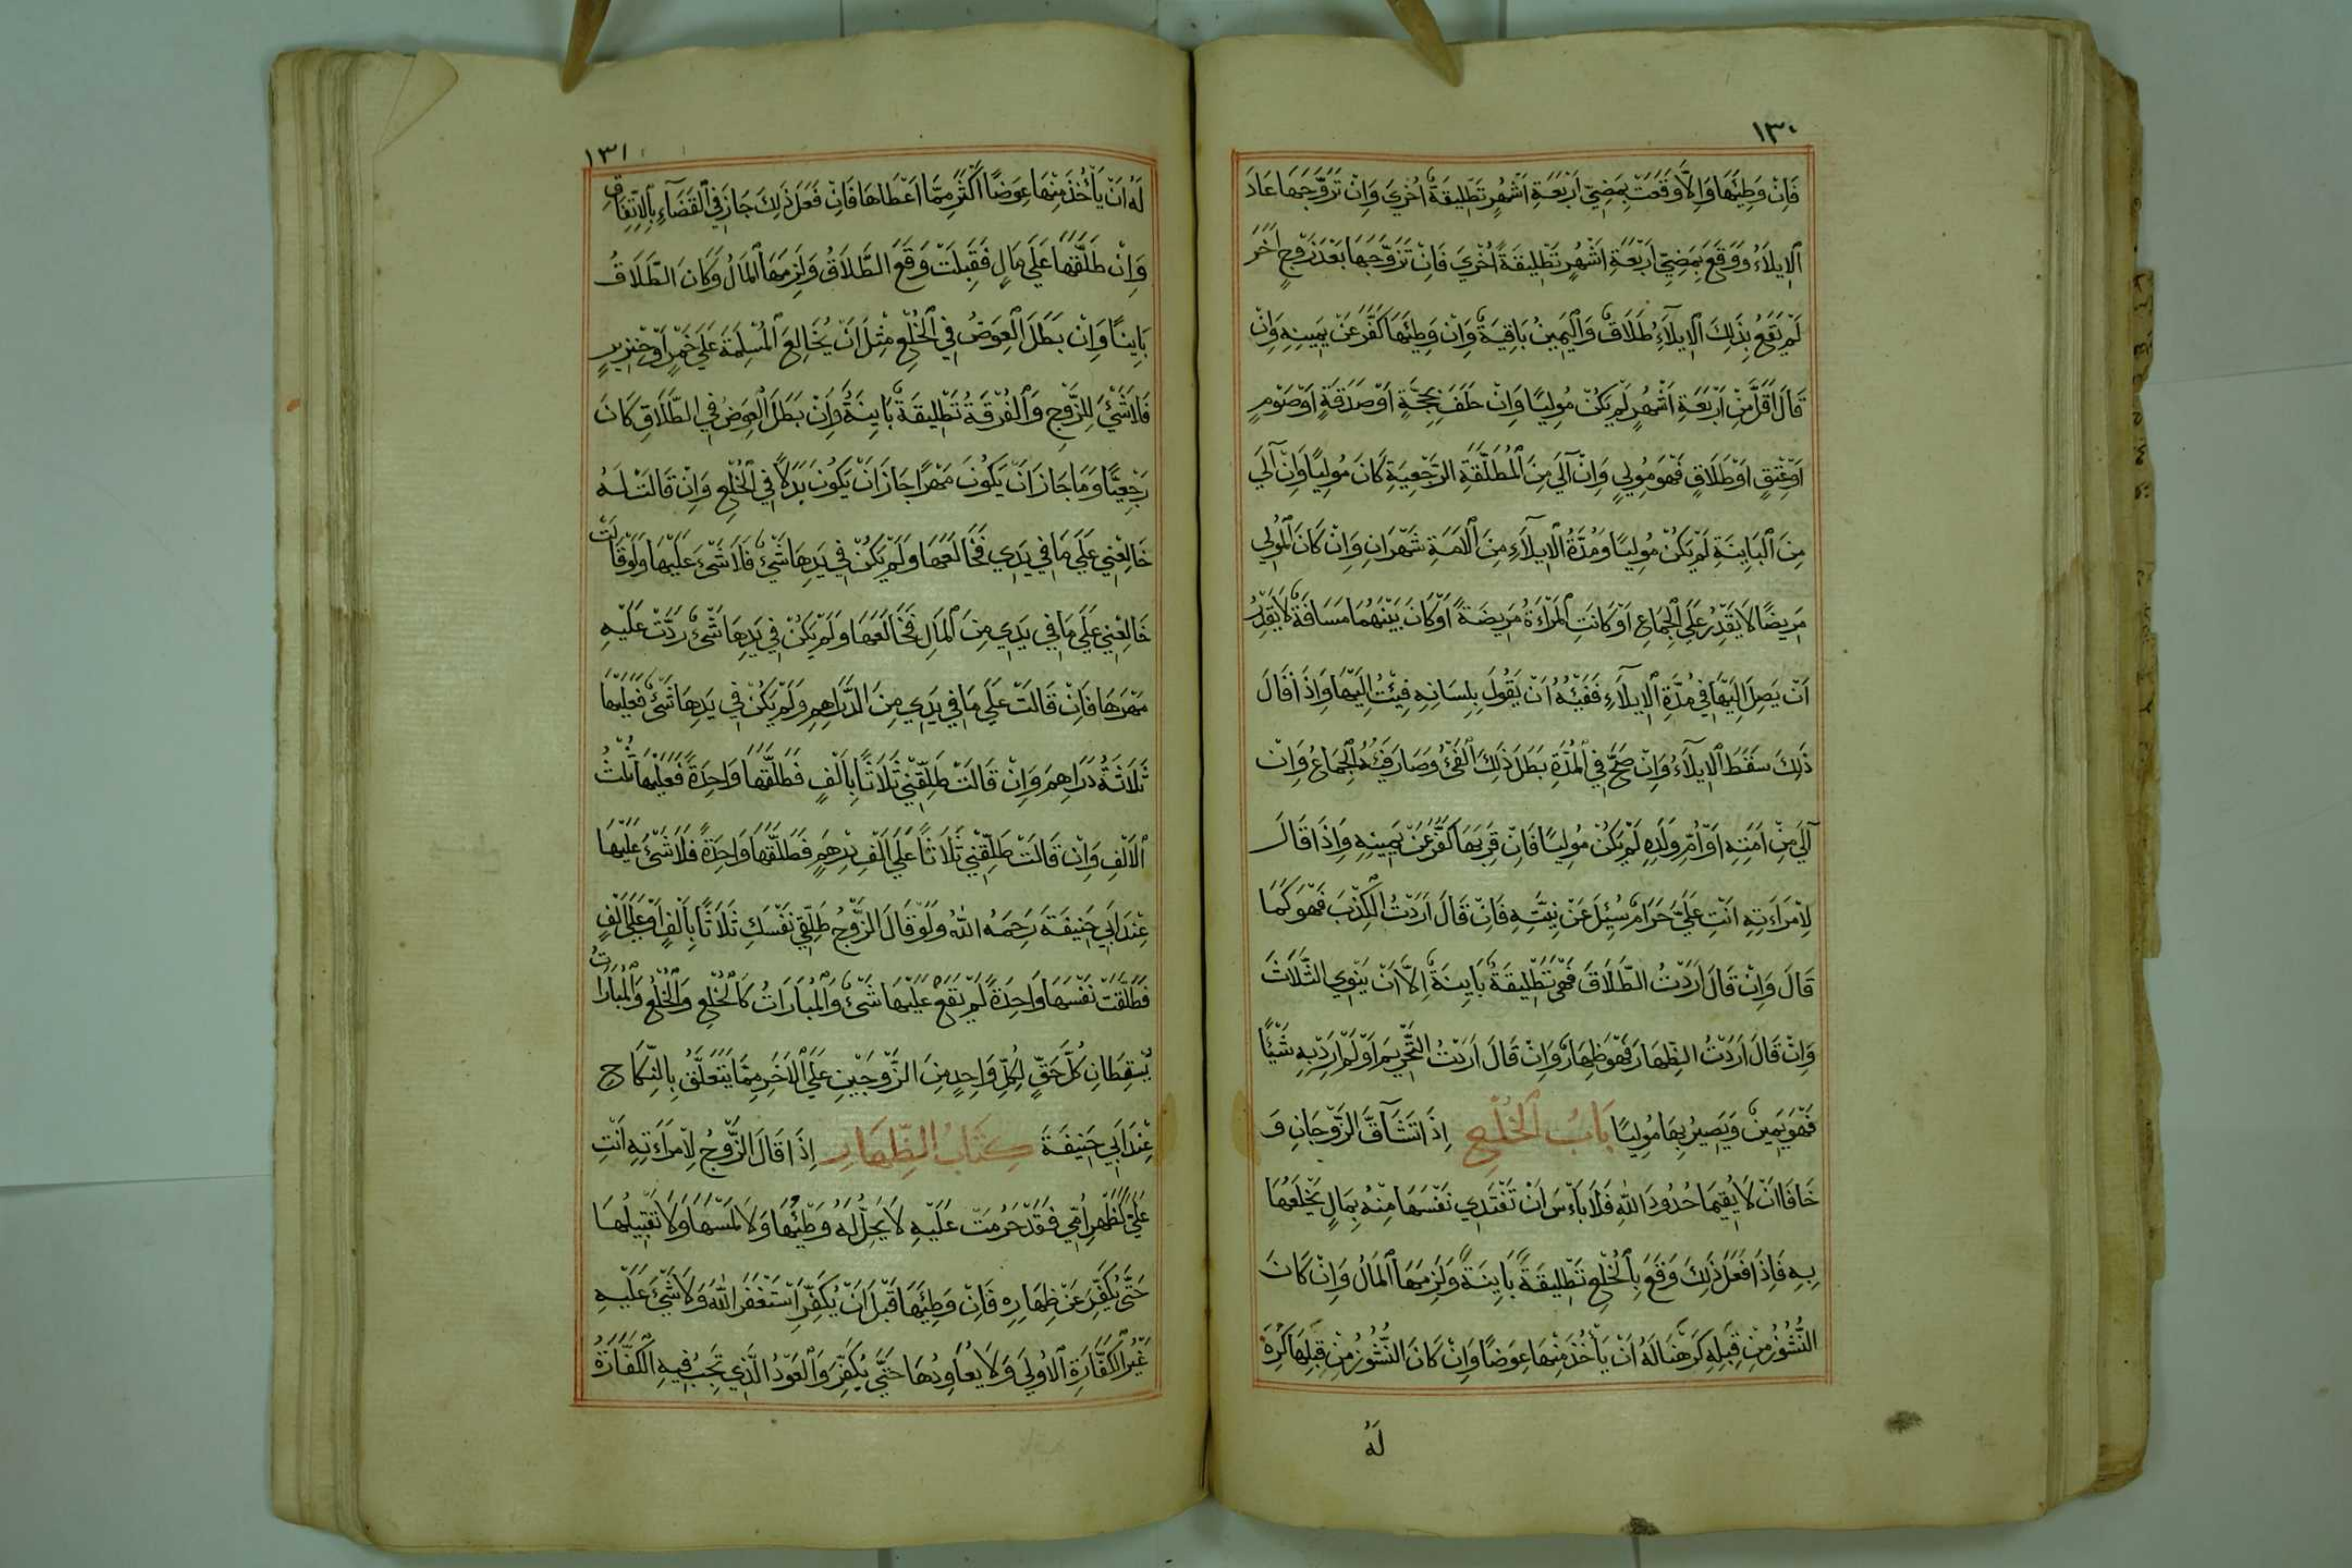 ١٣٠
فَاِنْ وَطِئَهَا وَاِلَّا وَقَعَتْ بِمَضِيِّ اَرْبَعَةِ اَشْهُرٍ تَطْلِيقَةٌ اُخْرَي وَاِنْ تَزَوَّجَهَا عَادَ
اَلْاِيلَاءُ وَوَقَعَ بِمَضِيِّ اَرْبَعَةِ اَشْهُرٍ تَطْلِيقَةً اُخْرَي فَاِنْ تَزَوَّجَهَا بَعْدَ زَوْجٍ اَخَرَ
لَمْ يَقَعْ بِذَلِكَ الْاِيلَآءِ طَلَاقٌ وَالْيَمِينُ بَاقِيَةٌ وَاِنْ وَطِئَهَا كَفَّرَ عَنْ يَمِينِهِ وَاِنْ
قَالَ اَقَلَّ مِنْ اَرْبَعَةِ اَشْهُرٍ لَمْ يَكُنْ مُولِيًا وَاِنْ حَلَفَ بِحَجَّةٍ اَوْ صَدَقَةٍ اَوْ صَوْمٍ
اَوْ عِتْقٍ اَوْ طَلَاقٍ فَهُوَ مُولِيٍ وَاِنْ آلَي مِنَ الْمُطَلَّقَةِ الرَّجْعِيَةِ كَانَ مُولِيًا وَاِنْ آلَي
مِنَ الْبَايِنَةِ لَمْ يَكُنْ مُولِيًا وَمُدَّةُ الْاِيلَآءِ مِنَ الْاَمَةِ شَهْرَانِ وَاِنْ كَانَ الْمُولِي
مَرِيضًا لَا يَقْدِرُ عَلَي الْجِمَاعِ اَوْ كَانَتِ الْمَرْاَةُ مَرِيضَةً اَوْ كَانَ بَيْنَهُمَا مَسَافَةٌ لَا يَقْدِرُ
اَنْ يَصِلَ اِلَيْهَا فِي مُدَّةِ الْاِيلَآءِ فَفَيْئُهُ اَنْ يَقُولَ بِلِسَانِهِ فِئْتُ اِلَيْهَا وَاِذَا قَالَ
ذَلِكَ سَقَطَ الْاِيلَآءُ وَاِنْ صَحَّ فِي الْمُدَّةِ بَطَلَ ذَلِكَ الْفَيْئُ وَصَارَ فَيْئُهُ الْجِمَاعُ وَاِنْ
آلَيَ مِنْ اَمَتِهِ اَوْ اُمِّ وَلَدِهِ لَمْ يَكُنْ مُولِيًا فَاِنْ قَرِبَهَا كَفَّرَ عَنْ يَمِينِهِ وَاِذَا قَالَ
لِاِمْرَاَتِهِ اَنْتِ عَلَيَّ حَرَامٌ سُئِلَ عَنْ نِيَّتِهِ فَاِنْ قَالَ اَرَدْتُ الْكِذْبَ فَهُوَ كَمَا
قَالَ وَاِنْ قَالَ اَرَدْتُ الطَّلَاقَ فَهِيَ تَطْلِيقَةٌ بَايِنَةٌ اِلَّا اَنْ يَنْوِي الثَّلَاثَ
وَاِنْ قَالَ اَرَدْتُ الظِّهَارَ فَهُوَ ظِهَارٌ وَاِنْ قَالَ اَرَدْتُ التَّحْرِيمَ اَوْ لَمْ اُرِدْ بِهِ شَيْئًا
فَهُوَ يَمِينٌ وَيَصِيرُ بِهَا مُولِيًا بَابُ الْخُلْعِ اِذَا تَشَآقَّ الزَّوْجَانِ وَ
خَافَا اَنْ لَا يُقِيمَا حُدُودَ اللهِ فَلَا بَاْسَ اَنْ تَفْتَدِي نَفْسَهَا مِنْهُ بِمَالٍ يَخْلَعُهَا
بِهِ فَاِذَا فَعَلَ ذَلِكَ وَقَعَ بِالْخُلْعِ تَطْلِيقَةً بَايِنَةً وَلَزِمَهَا الْمَالُ وَاِنْ كَانَ
النُّشُوزُ مِنْ قِبَلِهِ كَرِهْنَا لَهُ اَنْ يَأْخُذَ مِنْهَا عِوَضًا وَاِنْ كَانَ النُّشُوزُ مِنْ قِبَلِهَا كُرِهَ
لَهُ
١٣١
لَهُ اَنْ يَأْخُذَ مِنْهَا عِوَضًا اَكْثَرَ مِمَّا اَعْطَاهَا فَاِنْ فَعَلَ ذَلِكَ جَازَ فِي الْقَضَآءِ بِالْاِتِّفَاقِ
وَاِنْ طَلَّقَهَا عَلَي مَالٍ فَقَبِلَتْ وَقَعَ الطَّلَاقُ وَلَزِمَهَا الْمَالُ وَكَانَ الطَّلَاقُ
بَايِنًا وَاِنْ بَطَلَ الْعِوَضُ فِي الْخُلْعِ مِثْلَ اَنْ يُخَالِعَ الْمُسْلِمَةَ عَلَي خَمْرٍ اَوْ خِنْزِيرٍ
فَلَا شَيْئَ لِلزَّوْجِ وَالْفُرْقَةُ تَطْلِيقَةٌ بَايِنَةٌ وَاِنْ بَطَلَ الْعِوَضُ فِي الطَّلَاقِ كَانَ
رَجْعِيًّا وَمَا جَازَ اَنْ يَكُونَ مَهْرًا جَازَ اَنْ يَكُونَ بَدَلًا فِي الْخُلْعِ وَاِنْ قَالَتْ لَهُ
خَالِعْنِي عَلَي مَا فِي يَدِي فَخَالَعَهَا وَلَمْ يَكُنْ فِي يَدِهَا شَيْئٌ فَلَا شَيْئَ عَلَيْهَا وَلَوْ قَالَتْ
خَالِعْنِي عَلَي مَا فِي يَدِي مِنَ الْمَالِ فَخَالَعَهَا وَلَمْ يَكُنْ فِي يَدِهَا شَيْئٌ رَدَّتْ عَلَيْهِ
مَهْرَهَا فَاِنْ قَالَتْ عَلَي مَا فِي يَدِي مِنَ الدَّرَاهِمِ وَلَمْ يَكُنْ فِي يَدِهَا شَيْئٌ فَعَلَيْهَا
ثَلَاثَةُ دَرَاهِمَ وَاِنْ قَالَتْ طَلِّقْنِي ثَلَاثًا بِاَلْفٍ فَطَلَّقَهَا وَاحِدَةً فَعَلَيْهَا ثُلُثُ
الْاَلْفِ وَاِنْ قَالَتْ طَلِّقْنِي ثَلَاثًا عَلَي اَلْفِ دِرْهَمٍ فَطَلَّقَهَا وَاحِدَةً فَلَا شَيْئَ عَلَيْهَا
عِنْدَ اَبِي حَنِيفَةَ رَحِمَهُ اللهُ وَلَوْ قَالَ الزَّوْجُ طَلِّقِي نَفْسَكِ ثَلَاثًا بِاَلْفٍ اَوْ عَلَي اَلْفٍ
فَطَلَّقَتْ نَفْسَهَا وَاحِدَةً لَمْ يَقَعْ عَلَيْهَا شَيْئٌ وَالْمُبَارَاتُ كَالْخُلْعِ وَالْخُلْعُ وَالْمُبَارَاتُ
يُسْقِطَانِ كُلَّ حَقٍّ لِكُلِّ وَاحِدٍ مِنَ الزَّوْجَيْنِ عَلَي الْاَخَرِ مِمَّا يَتَعَلَّقُ بِالنِّكَاحِ
عِنْدَ اَبِي حَنِيفَةَ كِتَابُ الظِّهَارِ اِذَا قَالَ الزَّوْجُ لِاِمْرَاَتِهِ اَنْتِ
عَلَيَّ كَظَهْرِ اُمِّي فَقَدْ حَرُمَتْ عَلَيْهِ لَا يَحِلُّ لَهُ وَطْئُهَا وَلَا لَمْسُهَا وَلَا تَقْبِيلُهَا
حَتَّى يُكَفِّرَ عَنْ ظِهَارِهِ فَاِنْ وَطِئَهَا قَبْلَ اَنْ يُكَفِّرَ اِسْتَغْفَرَ اللهَ وَلَا شَيْئَ عَلَيْهِ
غَيْرُ الْكَفَّارَةِ الْاُولَي وَلَا يُعَاوِدُهَا حَتَّي يُكَفِّرَ وَالْعَوْدُ الَّذِي تَجِبُ فِيهِ الْكَفَّارَةُ